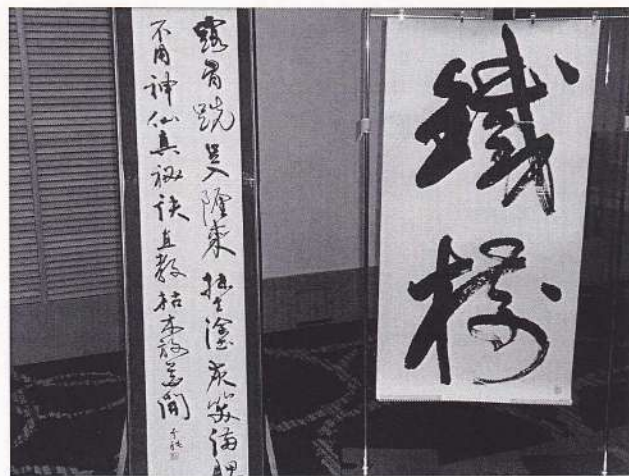 鐵樹
露胷跣足入廛來抹土塗灰笑滿腮
不用神仙真秘訣直教枯木放花開